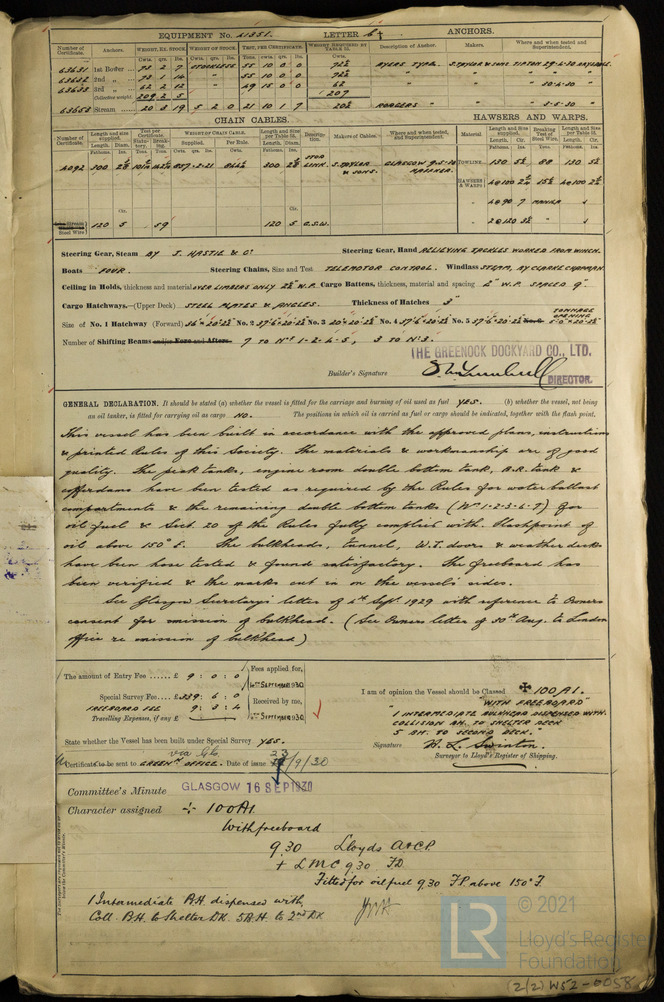 EQUIPMENT No. 41351. LETTER C† ANCHORS.
Number of Certificate. Anchors. WEIGHT, EX. STOCK. WEIGHT OF STOCK. TEST, PER CERTIFICATE. WEIGHT REQUIRED BY TABLE 31. Description of Anchor. Makers. Where and when tested and Superintendent.
63631 1st Bower 72 2 7 STOCKLESS 55 10 0 0 72½ BYERS TYPE. S. TAYLOR & SONS TIPTON 29-4-30
63632 2nd „ 72 1 14 „ 55 10 0 0 72½ „ „ „
63633 3rd „ 62 2 12 „ 49 15 0 0 62 „ „ 30-4-30 „
Collective weight. 209 2 5 207
63653 Stream 20 3 19 5 2 0 21 10 1 7 20½ RODGERS „ „ 5-5-30 „
CHAIN CABLES. HAWSERS AND WARPS.
Number of Certificate. Length and size supplied. Test per Certificate. WEIGHT OF CHAIN CABLE. Length and Size per Table 31. Description. Makers of Cables. Where and when tested, and Superintendent. Material Length and Size supplied. Breaking Test of Steel Wire. Length and Size per Table 31.
Supplied. Per Rule.
300 STUD LINK. S. TAYLER & SONS. GLASGOW 9-5-30 TOWLINE 130 5¼ 88 130 5¼
HAWSERS & WARPS 4@100 2¾ 15½ 4@100 2¾
„ 4@90 7 MANILA „
„ 2@120 3½ „ „
Stream Steel Wire 120 5 59 120 5 G.S.W.
Steering Gear, Steam BY J. HASTIE & Co Steering Gear, Hand RELIEVING TACKLES WORKED FROM WINCH.
Boats FOUR. Steering Chains, Size and Test TELEMOTOR CONTROL. Windlass STEAM, BY CLARKE CHAPMAN
Ceiling in Holds, thickness and material OVER LIMBERS ONLY 2½" W.P. Cargo Battens, thickness, material and spacing 2" W.P. SPACED 9"
Cargo Hatchways.—(Upper Deck) STEEL PLATES & ANGLES. Thickness of Hatches 3"
TONNAGE OPENING
Size of No. 1 Hatchway (Forward) 36'×20'-2½" No. 2 37'-6"×20'-2½" No. 3 20'×20'-2½" No. 4 37'-6"×20'-2½" No. 5 37'-6"×20'-2½" No. 6 5'-0"×20'-2½"
Number of Shifting Beams and/or Fore and Afters 7 TO Nos 1-2-4-5, 3 TO No 3.
THE GREENOCK DOCKYARD CO., LTD.
Builder's Signature DIRECTOR.
GENERAL DECLARATION. It should be stated (a) whether the vessel is fitted for the carriage and burning of oil used as fuel YES. (b) whether the vessel, not being
an oil tanker, is fitted for carrying oil as cargo NO. The positions in which oil is carried as fuel or cargo should be indicated, together with the flash point.
This vessel has been built in accordance with the approved plans, instructions
& printed Rules of this Society. The materials & workmanship are of good
quality. The peak tanks, engine room double bottom tank, B.R. tank &
cofferdams have been tested as required by the Rules for water ballast
compartments & the remaining double bottom tanks (Nos 1-2-3-6-7) for
oil fuel & Sect. 20 of the Rules fully complied with. Flashpoint of
oil above 150° F. The bulkheads, tunnel, W.T. doors & weather decks
have been hose tested & found satisfactory. The freeboard has
been verified & the marks cut in on the vessel's sides.
See Glasgow Secretary's letter of 4th Sept. 1929 with reference to Owners
consent for omission of bulkhead. (See Owners letter of 30th Aug. to London
office re omission of bulkhead)
The amount of Entry Fee £ 9 : 0 : 0 Fees applied for,
SEPTEMBER 1930
Special Survey Fee £ 339 : 6 : 0
FREEBOARD FEE 9 : 3 : 4 Received by me,
Travelling Expenses, if any £ SEPTEMBER 1930
I am of opinion the Vessel should be Classed ✠ 100A1.
"WITH FREEBOARD"
"1 INTERMEDIATE BULKHEAD DISPENSED WITH.
COLLISION BH. TO SHELTER DECK
5 BH. TO SECOND DECK."
State whether the Vessel has been built under Special Survey YES.
Signature H. L. Swinton.
Surveyor to Lloyd's Register of Shipping.
via Gls.
Certificate to be sent to GREENK OFFICE. Date of issue 23/9/30
Committee's Minute GLASGOW 16 SEP 1930
Character assigned + 100A1
With freeboard
9.30 Lloyds A&CP.
+ LMC 9.30 FD.
Fitted for oil fuel 9.30 F.P. above 150°F.
1 Intermediate B.H. dispensed with,
Coll. B.H. to Shelter Dk. 5 B.H. to 2nd Dk
LR © 2021
Lloyd's Register
Foundation
(2/2) W52-0058